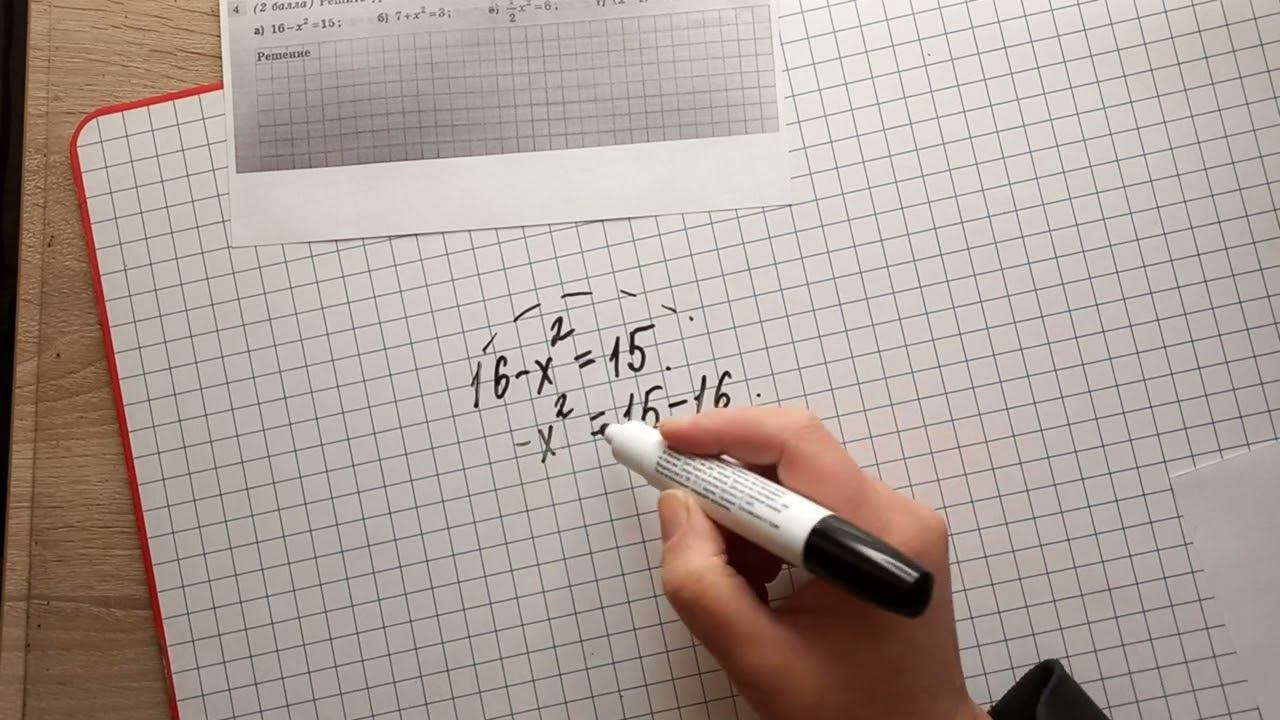 4 (2 балла) Решите
а) 16−x²=15; б) 7+x²=3; в) 1/2 x²=6;
Решение
16−x²=15.
−x²=15−16.